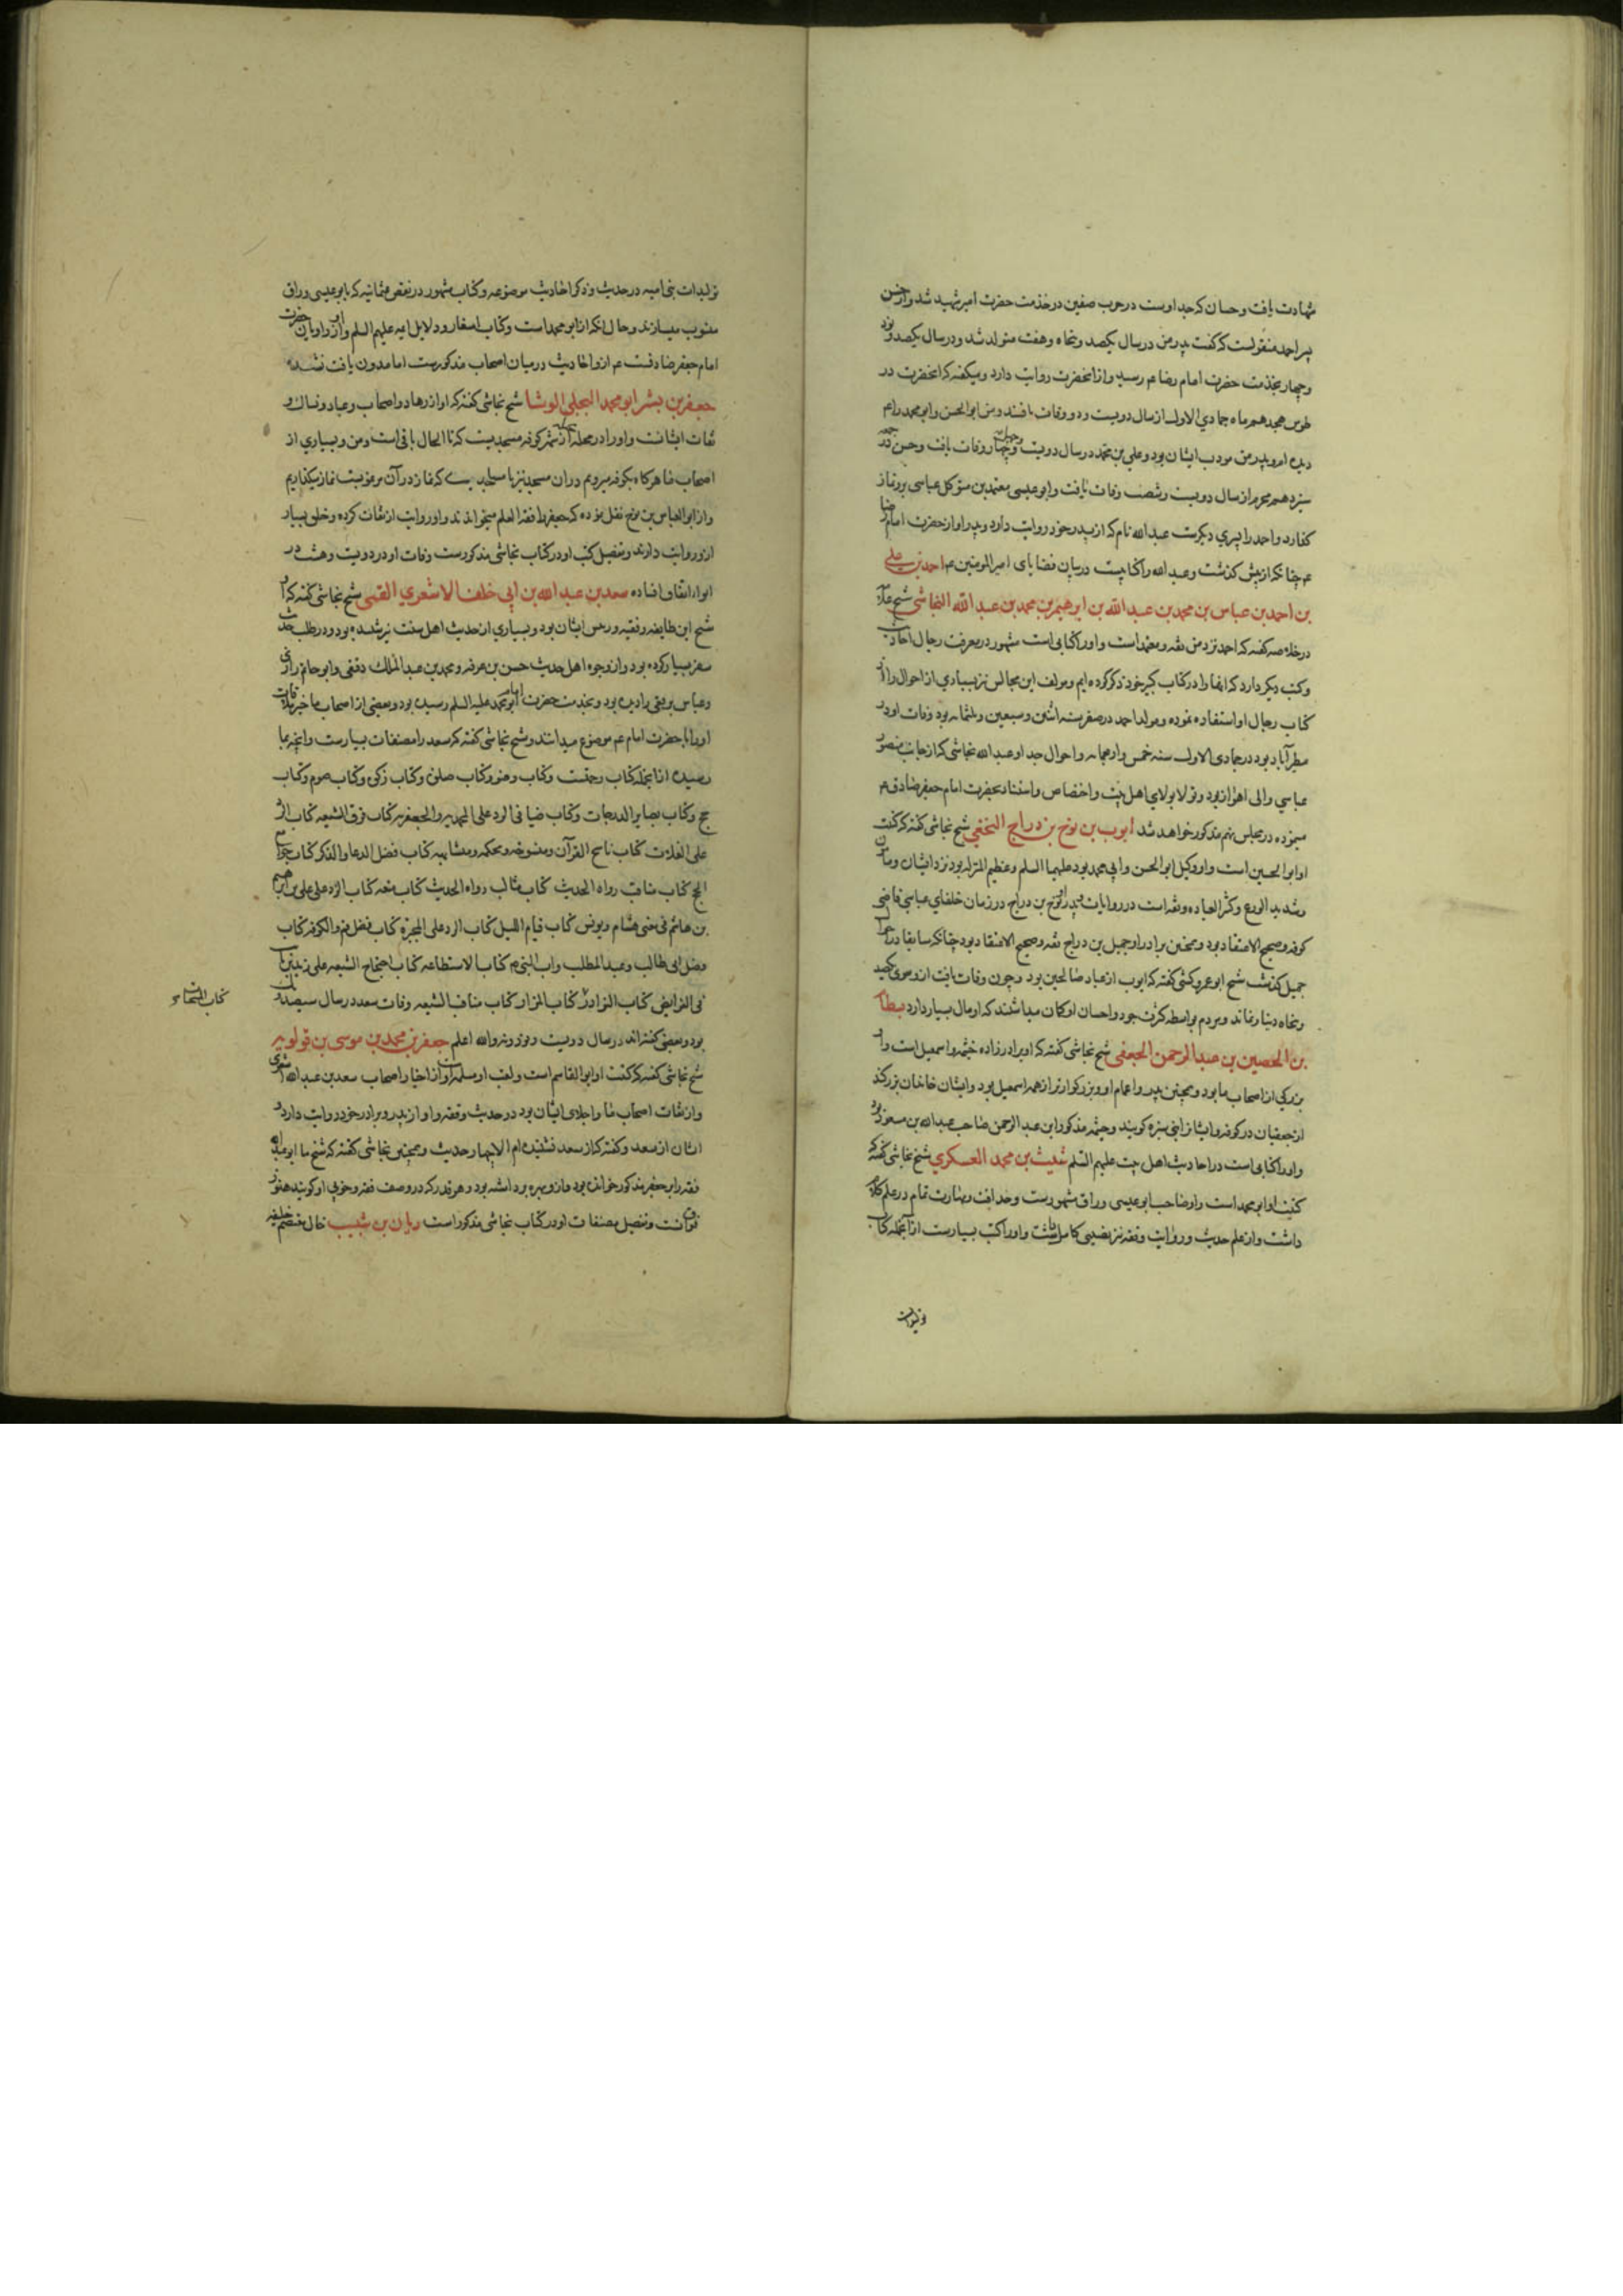 شهادت یافت و حسان که جد اوست در حرب صفین در خدمت حضرت امیر شهید شد و از حسن
پسر احمد منقولست که گفت پدر من در سال یکصد و پنجاه و هفت متولد شد و در سال یکصد و نود
و چهار بخدمت حضرت امام رضا عم رسید و از انحضرت روایت دارد و میگفته که انحضرت در
طوس هجدهم ماه جمادی الاولی از سال دویست و دو وفات یافتند و من ابو الحسن و ابو محمد را عم
دیدم و پدر من مودب ایشان بود و علی بن محمد در سال دویست و چهل و چهار وفات یافت و حسن در جمعه
سیزدهم محرم از سال دویست و شصت وفات یافت و ابو عیسی معتمد بن متوکل عباسی برو نماز
گذارد و احمد را پسری دیگرست عبد الله نام که از پدر خود روایت دارد و پدر او از حضرت امام رضا
عم چنانکه از پیش گذشت و عبد الله را کتابیست در بیان قضایای امیر المومنین عم احمد بن علی
بن احمد بن عباس بن محمد بن عبد الله بن ابرهیم بن محمد بن عبد الله النجاشی شیخ علامه
در خلاصه گفته که احمد نزد من ثقه و معتمد است و او را کتابی است مشهور در معرفت رجال احادیث
و کتب دیگر دارد که انها را در کتاب کبیر خود ذکر کرده ایم و مولف این مجالس نیز بسیاری از احوال را از
کتاب رجال او استفاده نموده و مولد احمد در صفر سنه اثنین و سبعین و ثلثمائه بود وفات او در
مطیرآباد بود در جمادی الاولی سنه خمس و اربعمائه و احوال جد او عبد الله نجاشی که از جانب منصور
عباسی والی اهواز بود و تولا بولای اهل بیت و اختصاص و استناد بحضرت امام جعفر صادق عم
مینموده در مجلس نهم مذکور خواهد شد ایوب بن نوح بن دراج النخعی شیخ نجاشی گفته که کنیت
او ابو الحسین است و او وکیل ابو الحسن و ابی محمد بود علیهما السلم و عظیم المنزله بود نزد ایشان و مامون
و شدید الورع و کثیر العباده و ثقه است در روایات و پدر او نوح بن دراج در زمان خلفای عباسی قاضی
کوفه و صحیح الاعتقاد بود و همچنین برادر او جمیل بن دراج ثقه و صحیح الاعتقاد بود چنانکه سابقا در احوال
جمیل گذشت شیخ ابو عمرو کشی گفته که ایوب از عباد صالحین بود و چون وفات یافت از و سوی یکصد
و پنجاه دینار نماند و مردم بواسطه کثرت جود و احسان او گمان میداشتند که او مال بسیار دارد بسطام
بن الحصین بن عبد الرحمن الجعفی شیخ نجاشی گفته که او برادر زاده خیثمه و اسمعیل است و او
بزرگی از اصحاب ما بود و همچنین پدر و اعمام او و بزرگوارتر از همه اسمعیل بود و ایشان خاندان بزرگند
از جعفیان در کوفه و ایشانرا بنی سبره گویند و خیثمه مذکور ابن عبد الرحمن صاحب عبد الله بن مسعود بود
و او را کتابی است در احادیث اهل بیت علیهم السلم ثبیت بن محمد العسکری شیخ نجاشی گفته که
کنیت او ابو محمد است و او صاحب ابو عیسی وراق مشهورست و حذاقت و مهارت تمام در علم کلام
داشت و از علم حدیث و روایت و فقه نیز نصیبی کامل داشت و او را کتب بسیارست از آنجمله کتاب
تولیدات
تولیدات بنی امیه در حدیث و ذکر احادیث موضوعه و کتاب مشهور در نقض عثمانیه که بابو عیسی وراق
منسوب میسازند و حال انکه از ابو محمد است و کتاب اسفار و دلایل ایمه علیهم السلم و او از راویان حضرت
امام جعفر صادقست عم ازو احادیث در میان اصحاب مذکورست اما مدون یافت نشده
جعفر بن بشیر ابو محمد البجلی الوشا شیخ نجاشی گفته که او از زهاد و اصحاب و عباد و نساک و
ثقات ایشانست و او را در محله بجیله از شهر کوفه مسجدیست که تا الحال باقی است و من و بسیاری از
اصحاب ما هرگاه بکوفه میرویم دران مسجد نیز با مساجد دیگر که نماز در آن مرغوبست نماز میگذاریم
و از ابو العباس بن نوح نقل نموده که جعفر را فقحة العلم میخواندند و او روایت از ثقات کرده و خلق بسیار
ازو روایت دارند و تفصیل کتب او در کتاب نجاشی مذکورست وفات او در دویست و هشت در
ابواء اتفاق افتاده سعد بن عبد الله بن ابی خلف الاشعری القمی شیخ نجاشی گفته که او
شیخ این طایفه و فقیه و رئیس ایشان بود و بسیاری از حدیث اهل سنت نیز شنیده بود و در طلب حدیث
سفر بسیار کرده بود و از وجوه اهل حدیث حسن بن عرفه و محمد بن عبد الملک دقیقی و ابو حاتم رازی
و عباس ترقفی را دیده بود و بخدمت حضرت امام ابو محمد علیه السلم رسیده بود و بعضی از اصحاب ما خبر ملاقات
او را با حضرت امام عم موضوع میدانند و شیخ نجاشی گفته که سعد را مصنفات بسیارست و انچه بما
رسیده از انجمله کتاب رحمتست و کتاب وضو و کتاب صلوة و کتاب زکوة و کتاب صوم و کتاب
حج و کتاب بصایر الدرجات و کتاب ضیا فی الرد علی المحمدیه و الجعفریه کتاب فرق الشیعه کتاب الرد
علی الغلات کتاب ناسخ القرآن و منسوخه و محکمه و متشابهه کتاب فضل الدعا و الذکر کتاب جوامع
الحج کتاب مناقب رواة الحدیث کتاب مثالب رواة الحدیث کتاب متعه کتاب الرد علی علی بن ابراهیم
بن هاشم فی معنی هشام و یونس کتاب قیام اللیل کتاب الرد علی المجبره کتاب فضل قم و الکوفه کتاب
فضل ابی طالب و عبد المطلب و اب النبی ص کتاب الاستطاعه کتاب احتجاج الشیعه علی زید بن ثابت
فی الفرایض کتاب النوادر کتاب المزار کتاب مناقب الشیعه وفات سعد در سال سیصد و یک
بود و بعضی گفته اند در سال دویست و نود و نه والله اعلم جعفر بن محمد بن موسی بن قولویه
شیخ نجاشی گفته که کنیت او ابو القاسم است و لقب او مسلمه است و او از اخیار اصحاب سعد بن عبد الله اشعری
و از ثقات اصحاب ما و اجلای ایشان بود در حدیث و فقه و او از پدر و برادر خود روایت دارد و
ایشان از سعد و گفته که از سعد نشنیده‌ام الا چهار حدیث و همچنین نجاشی گفته که شیخ ما ابو عبد الله
فقه را بر جعفر مذکور خوانده بود و ازو بهره برداشته بود و هر قدر که در وصف فقه و خوبی او گویند هنوز
فوق آنست و تفصیل مصنفات او در کتاب نجاشی مذکور است ریان بن شبیب خال معتصم خلیفه